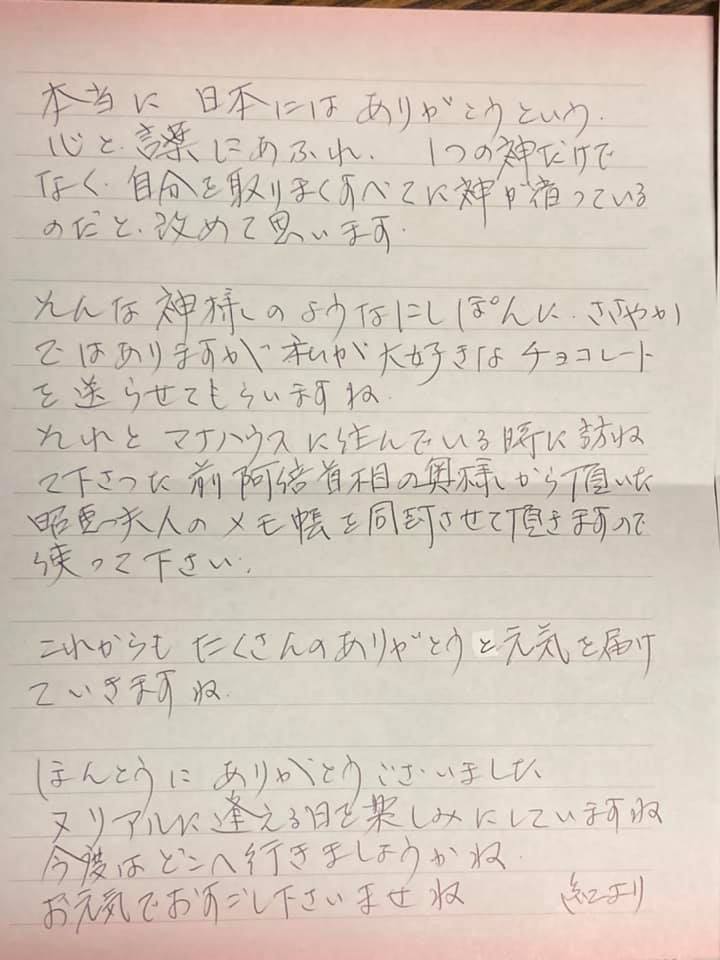 本当に 日本には ありがとうという.
心と.言葉にあふれ. 1つの神だけで
なく.自分を取りまくすべてに神が宿っている
のだと.改めて思います.
そんな神様のようなにしぽんに.ささやか
ではありますが 私が大好きなチョコレート
を送らせてもらいますね.
それと マナハウスに住んでいる時に訪ね
て下さった前阿倍首相の奥様から頂いた
昭恵夫人のメモ帳を同封させて頂きますので
使って下さい.
これからも たくさんのありがとうと元気を届け
ていきますね.
ほんとうに ありがとうございました.
又リアルに逢える日を楽しみにしていますね
今度はどこへ行きましょうかね.
お元気でおすごし下さいませね より